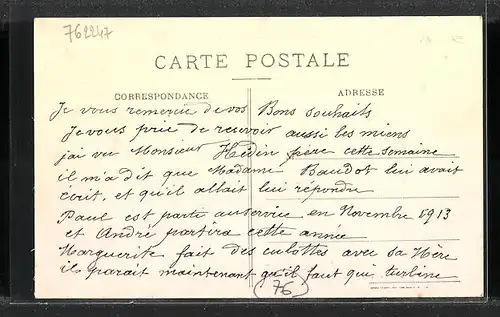 762247
CARTE POSTALE
CORRESPONDANCE
ADRESSE
Je vous remercie de vos Bons souhaits
Je vous prie de resevoir aussi les miens
jai vu Monsieur Hédin père cette semaine
il m'a dit que Madame Baudot lui avait
écrit, et qu'il allait lui répondre
Paul est parti au service en Novembre 1913
et André partira cette année
Marguerite fait des culottes avec sa Mère
il parait maintenant qu'il faut qui turbine
(76)